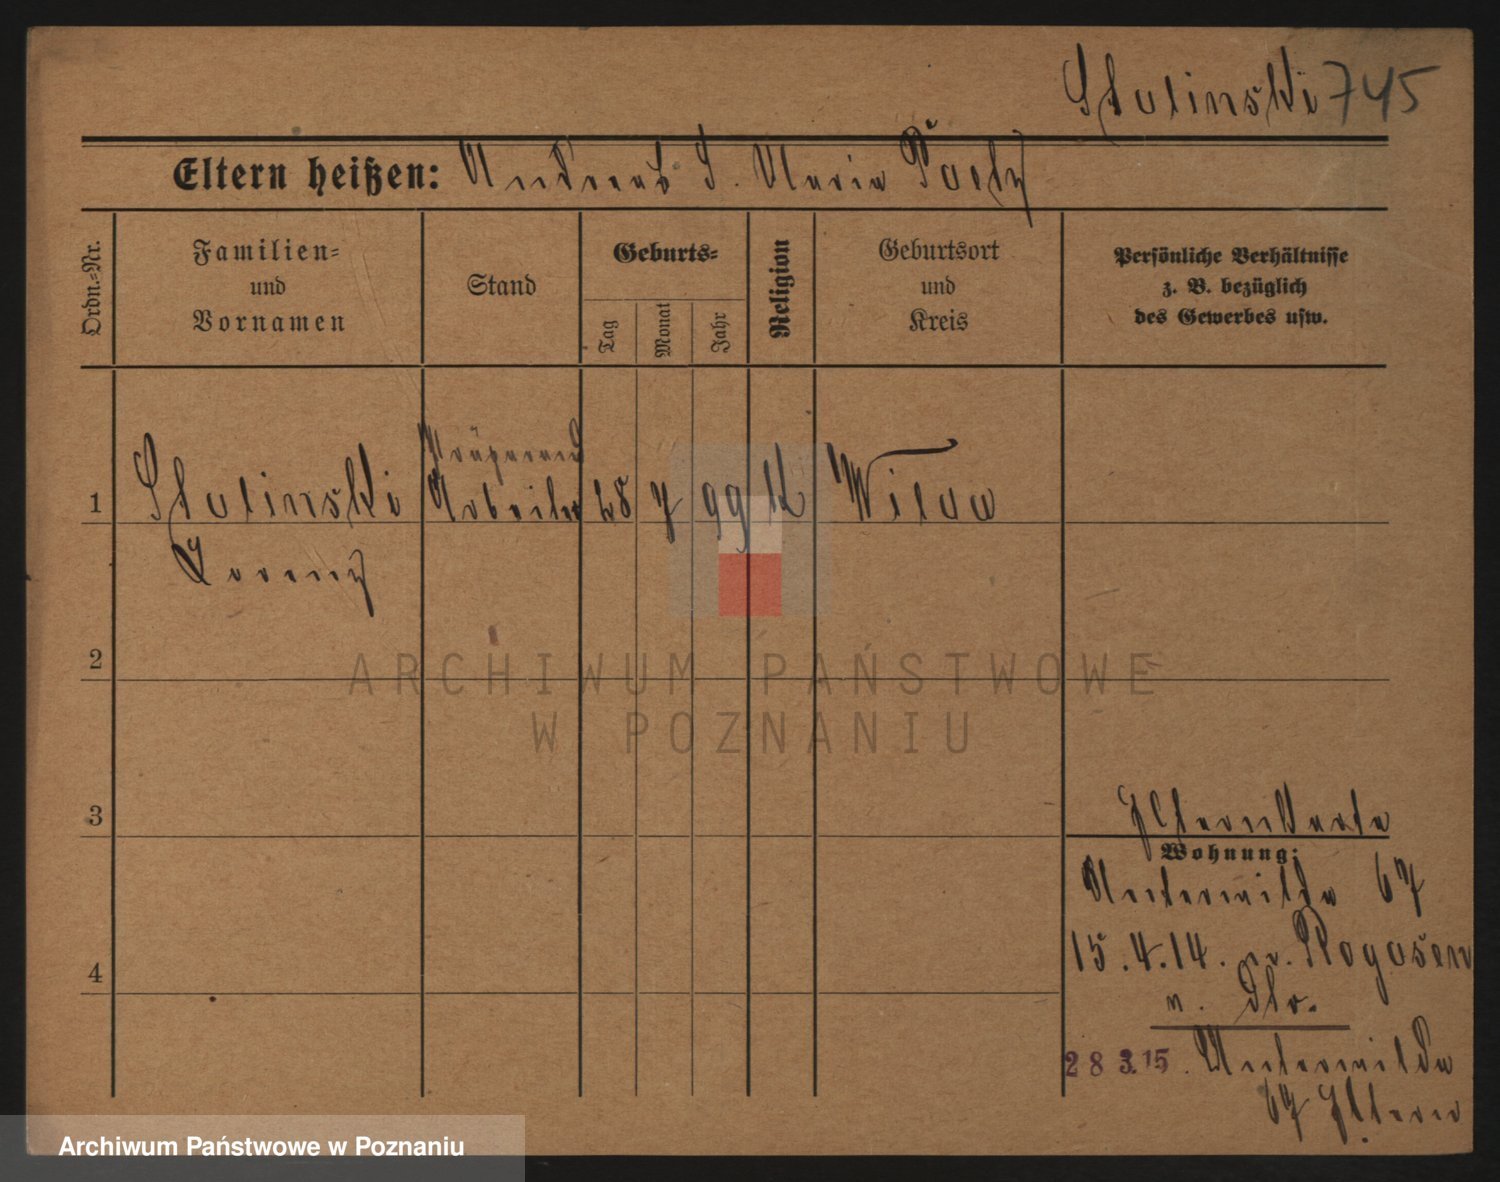 Stolinski 745
Eltern heißen: Andreas S. Maria
Ordn.=Nr.
Familien=
und
Vornamen
Stand
Geburts=
Tag
Monat
Jahr
Religion
Geburtsort
und
Kreis
Persönliche Verhältnisse
z. B. bezüglich
des Gewerbes usw.
Präparand
1 Stolinski Arbeiter 28 7 99 K Wilda
Lorenz
2
ARCHIWUM PAŃSTWOWE
W POZNANIU
3 Elternkarte
Wohnung:
Unterwilda 67
15.4.14. n. Rogasen
4
28 3.15. Unterwilda
67 Eltern
Archiwum Państwowe w Poznaniu